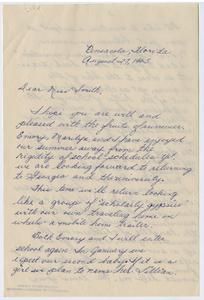 Pensacola, Florida
August 27, 1963
Dear Miss Smith,
I hope you are well and
pleased with the fruits of summer.
Emory, Marilyn and I have enjoyed
our summer away from the
rigidity of school schedules yet
we are looking forward to returning
to Georgia and the university.
This time we'll return looking
like a group of "scholarly gypsies"
with our own traveling home on
wheels - a mobile home trailer.
Both Emory and I will enter
school again. In January we
expect our second baby. If it is a
girl we plan to name her Lillian.